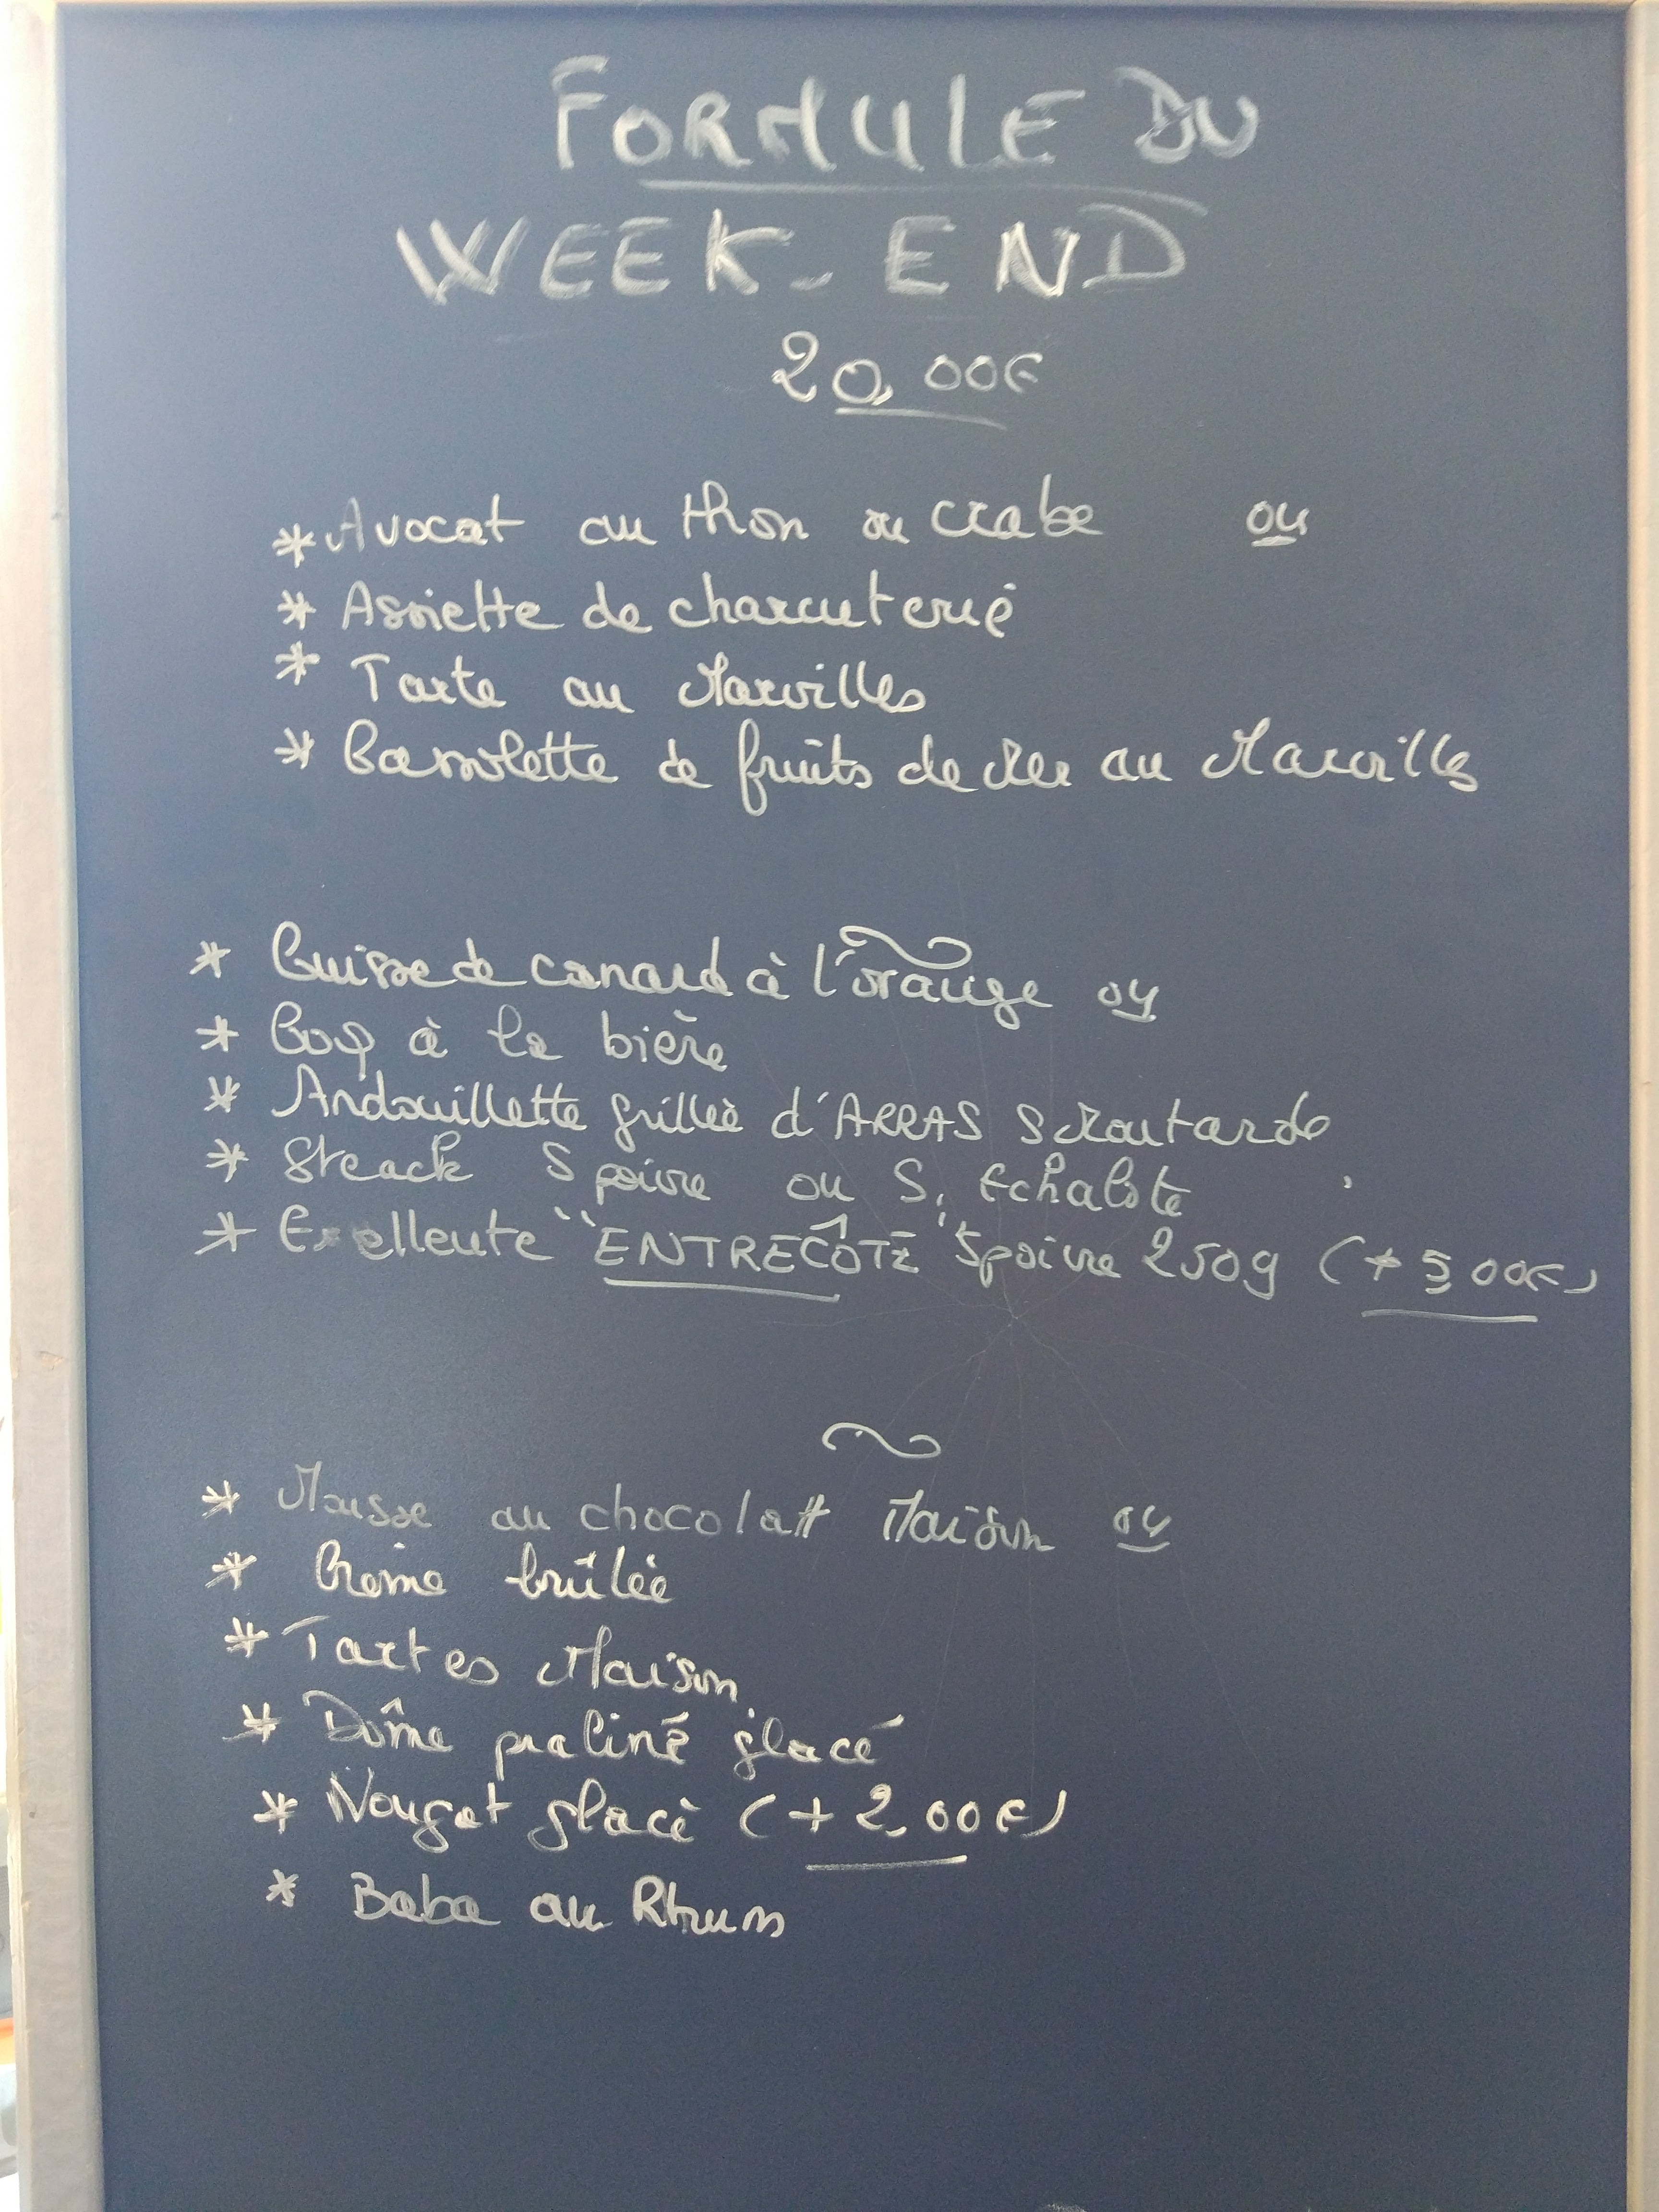 FORMULE DU
WEEK-END
20,00€
* Avocat au thon ou crabe ou
* Assiette de charcuterie
* Tarte au Maroilles
* Cassolette de fruits de Mer au Maroilles
* Cuisse de canard à l'orange ou
* Coq à la bière
* Andouillette grillée d'ARRAS S Moutarde
* Steack S poivre ou S. Echalote
* Exellente "ENTRECÔTE" S poivre 250g (+ 5,00€)
* Mousse au chocolat Maison ou
* Crème brûlée
* Tartes Maison
* Dôme praliné glacé
* Nougat glacé (+ 2,00€)
* Baba au Rhum